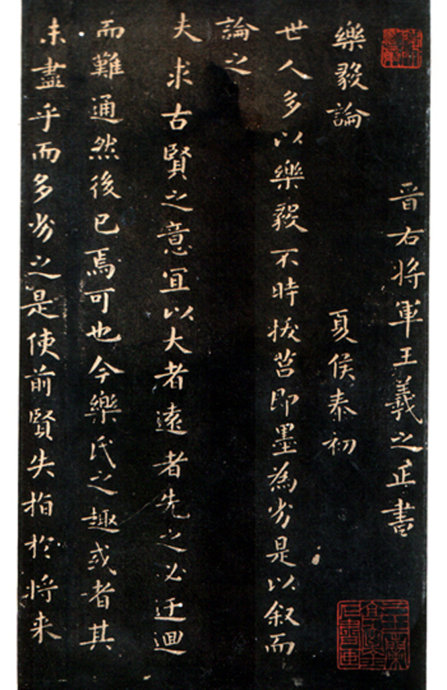 晉右將軍王羲之正書
樂毅論
夏侯泰初
世人多以樂毅不時拔莒即墨為劣是以叙而
論之
夫求古賢之意宜以大者遠者先之必迂迴
而難通然後已焉可也今樂氏之趣或者其
未盡乎而多劣之是使前賢失指於將来